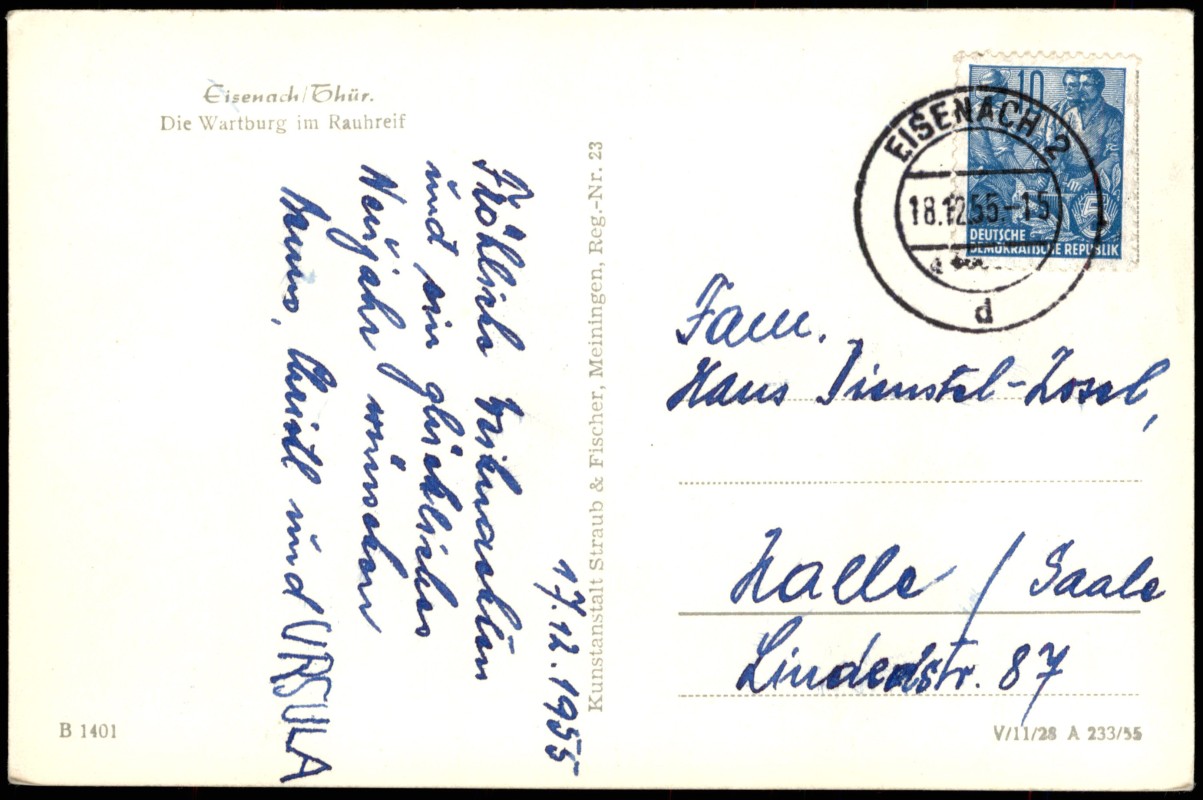 Eisenach/Thür.
Die Wartburg im Rauhreif
17.12.1955
Fröhliche Weihnachten
und ein glückliches
Neujahr wünschen
Hanns, Christl und URSULA
Kunstanstalt Straub & Fischer, Meiningen, Reg.-Nr. 23
10
EISENACH 2
18.12.55-15
d
5
DEUTSCHE
DEMOKRATISCHE REPUBLIK
Fam.
Hans Dienstel-Zosel,
Halle / Saale
Lindenstr. 87
B 1401
V/11/28 A 233/55